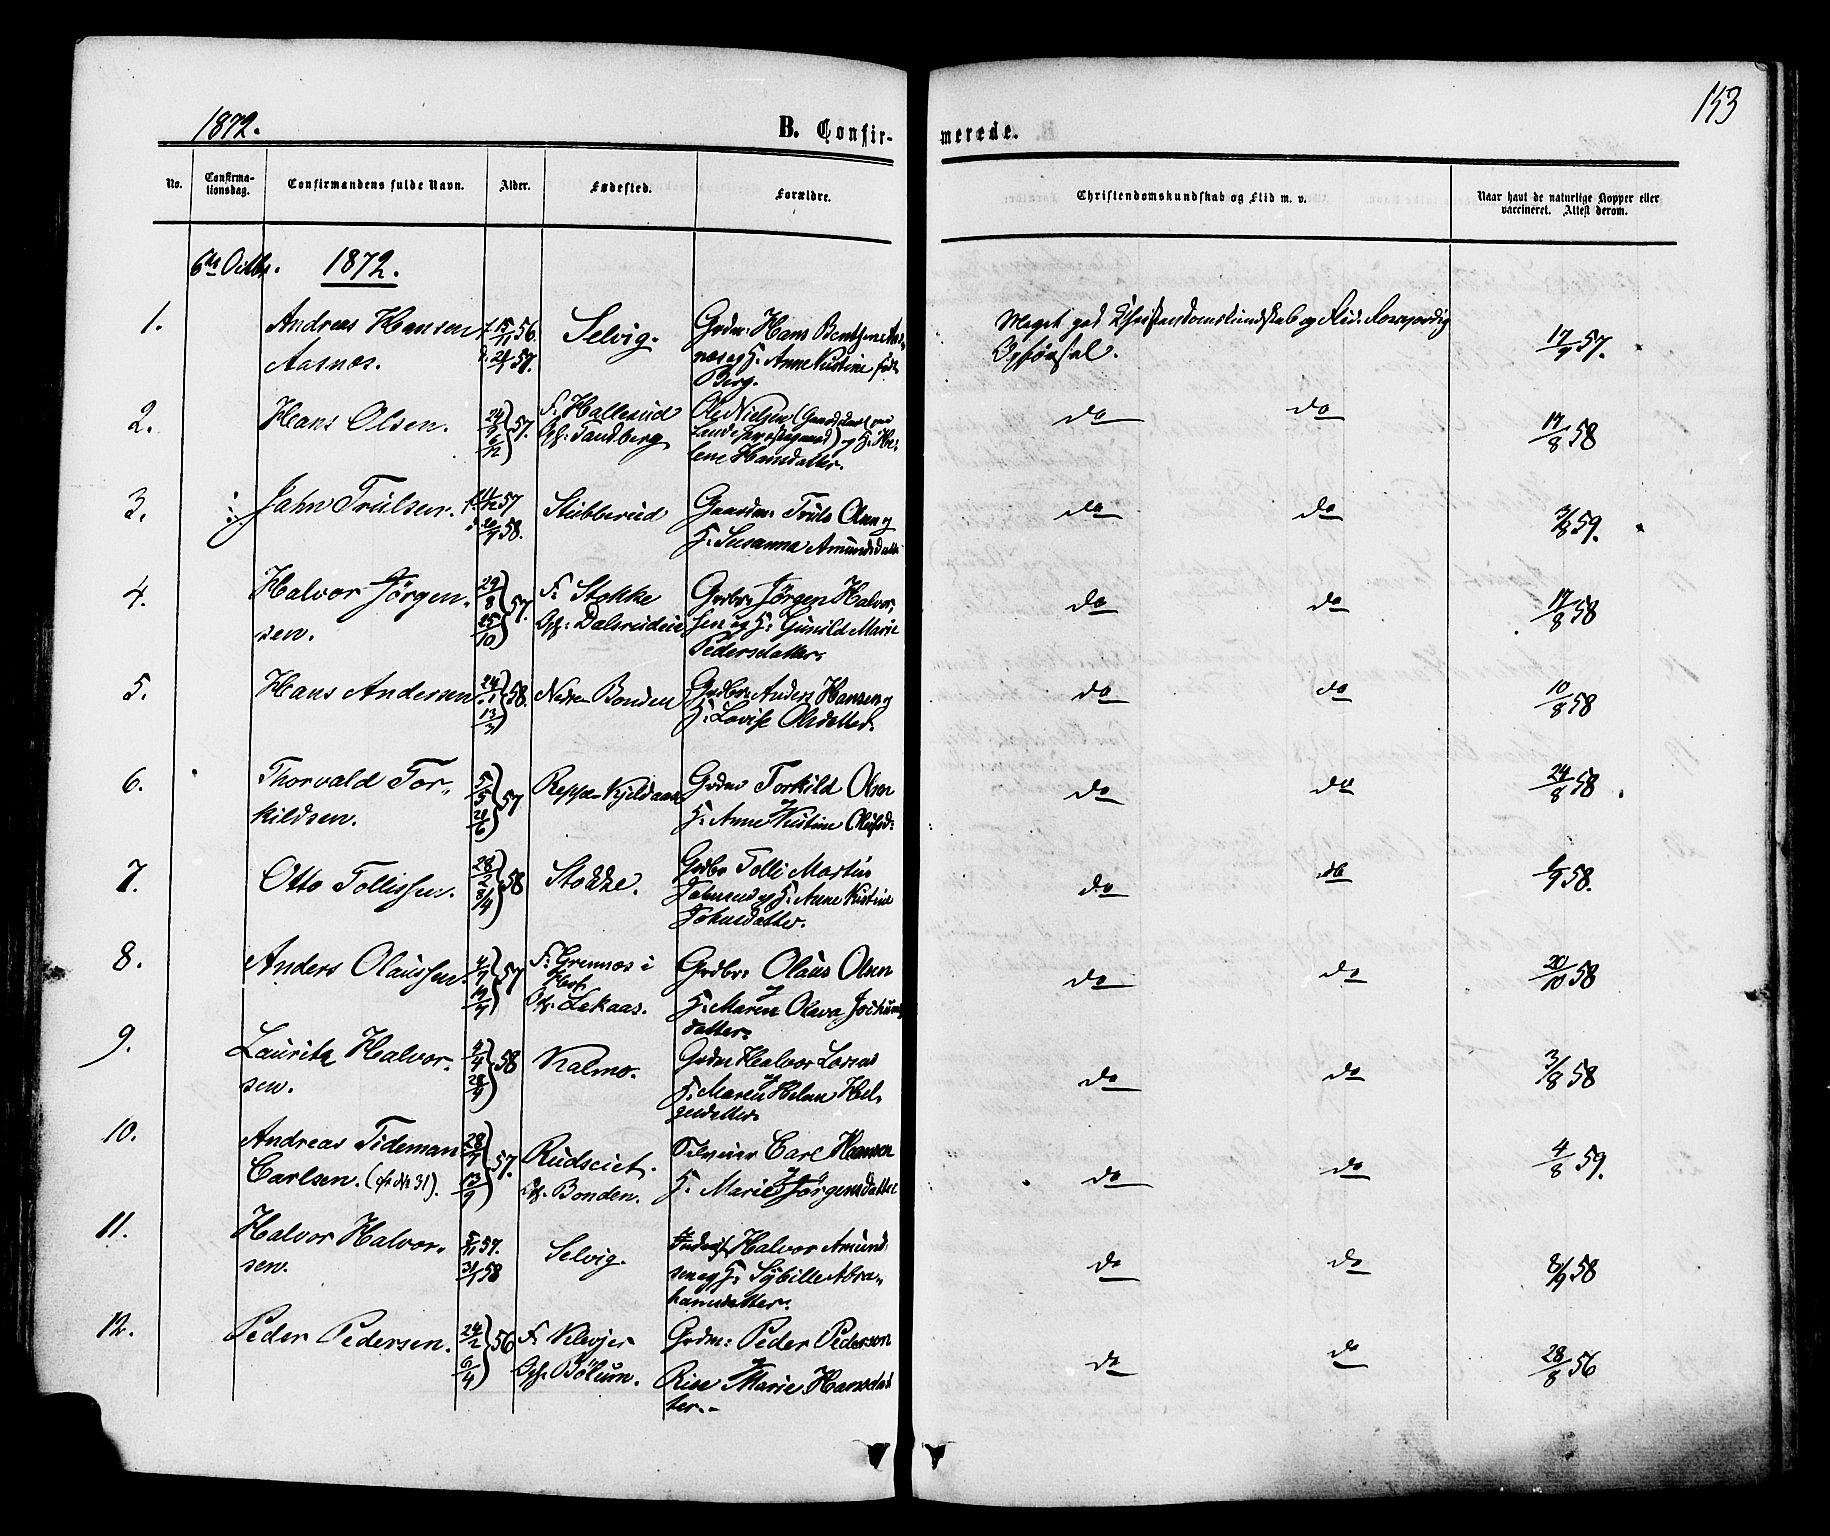 1872.
B. Confir-
merede.
153
No.
Confirma-
tionsdag.
Confirmandens fulde Navn.
Alder.
Fødested.
Forældre.
Christendomskundskab og Flid m. v.
Naar havt de naturlige Kopper eller
vaccineret. Attest derom.
6te Octbr. 1872.
1.
Andreas Hansen
Aasnæs.
f. 15/11 56.
d. 2/1 57.
Selvig.
Grdm: Hans Bentsen Aas-
næs og H: Anne Kirstine født
Berg.
Meget god Christendomskundskab og Flid. Roesværdig
Opførsel.
17/9 57.
2.
Hans Olsen.
24/9 6/12 } 57.
F: Hallerud
Opf: Sandberg
Ole Nielsen (
) og H: He-
lene Hansdatter.
do do
17/8 58
3.
Jahn Trulsen.
11/12 57
20/1 58.
Stubberud
Gaardm: Truls Olsen og
H: Susanna Amundsdatter
do do
3/8 59.
4.
Halvor Jørgen-
sen.
29/8 25/10 } 57.
F: Stokke
Opf: Dalsrudeie
Grdbr: Jørgen Halvor-
sen og H: Gunild Marie
Pedersdatter.
do do
17/8 58
5.
Hans Andersen
24/1 13/3 } 58.
Nedre Bonden
Grdbr: Anders Hansen og
H: Lovise Olsdatter.
do do
10/8 58
6.
Thorvald Tor-
kildsen.
5/5 21/6 } 57
Grdm Torkild Olsen
og
H: Anne Kirstine Olufsd:
do do
24/8 58
7.
Otto Tollissen.
28/2 3/4 } 58
Stokke.
Grdbr Tolli Martin
og H: Anne Kirstine
Johnsdatter.
do do
6/9 58.
8.
Anders Olaussen.
4/7 19/7 } 57
F: Grennes i
Opf: Lekaas.
Grdbr: Olaus Olsen
og
H: Maren Olava Jochums-
datter.
do do
20/10 58
9.
Lauritz Halvor-
sen.
4/4 28/4 } 58
Kalmo.
Grdm Halvor Larsen
og
H: Maren Helene Hel-
gesdatter.
do do
3/8 58
10.
Andreas Tideman
Carlsen. (cfr No 31).
28/7 13/9 } 57.
Rudseiet.
Opf. Bonden.
Carl Hansen
og
H: Marie Jørgensdatter
do do
4/8 59.
11.
Halvor Halvor-
sen.
5/11 57.
31/1 58
Selvig.
Halvor Amund-
sen og H: Sybille Abra-
hamsdatter.
do do
8/9 58
12.
Peder Pedersen.
24/2 6/4 } 56
F: Klevjer
Opf. Bökum.
Grdm: Peder Pederson
og
Rise Marie Hansdat-
ter.-
do do
28/8 56